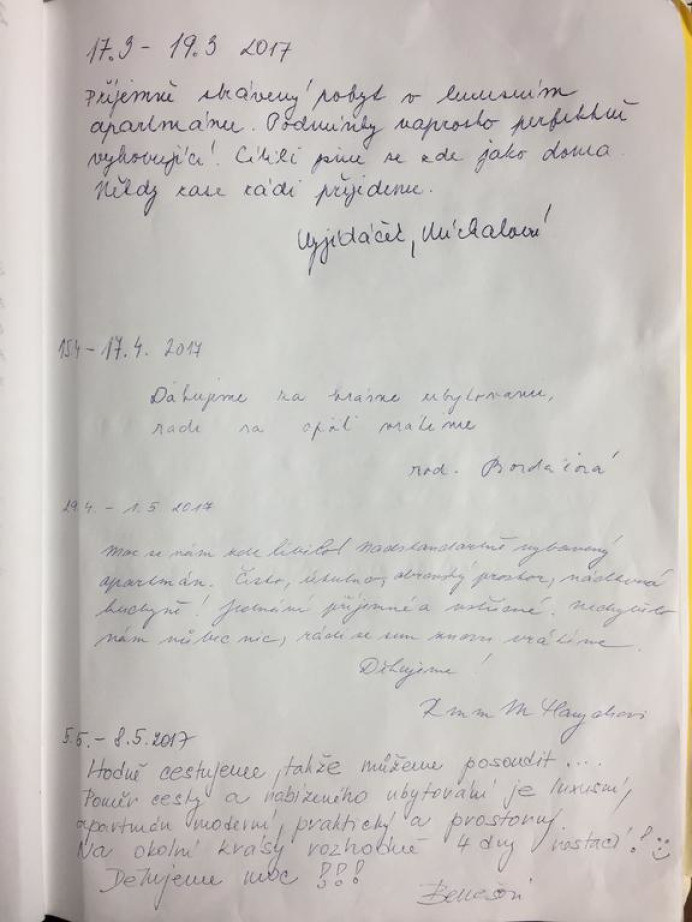 17.3 - 19.3 2017
Příjemně strávený pobyt v luxusním
apartmánu. Podmínky naprosto perfektně
vyhovující! Cítili jsme se zde jako doma.
Někdy zase rádi přijdeme.
Vyjídáček, Michalová
15.4 - 17.4. 2017
Ďakujeme za krásne ubytovanie,
radi sa opäť vrátime
rod.
29.4. - 1.5 2017
Moc se nám zde líbilo! Nadstandartně vybavený
apartmán. Čisto, útulno, obrovský prostor, nádherná
kuchyně! Jednání příjemné a vstřícné. Nechybělo
nám vůbec nic, rádi se sem znovu vrátíme.
Děkujeme!
5.5. - 8.5.2017
Hodně cestujeme, takže můžeme posoudit ....
Poměr cesty a nabízeného ubytování je luxusní,
apartmán moderní, praktický a prostorný.
Na okolní krásy rozhodně 4 dny nestačí!! :)
Děkujeme moc !!!
Benešovi